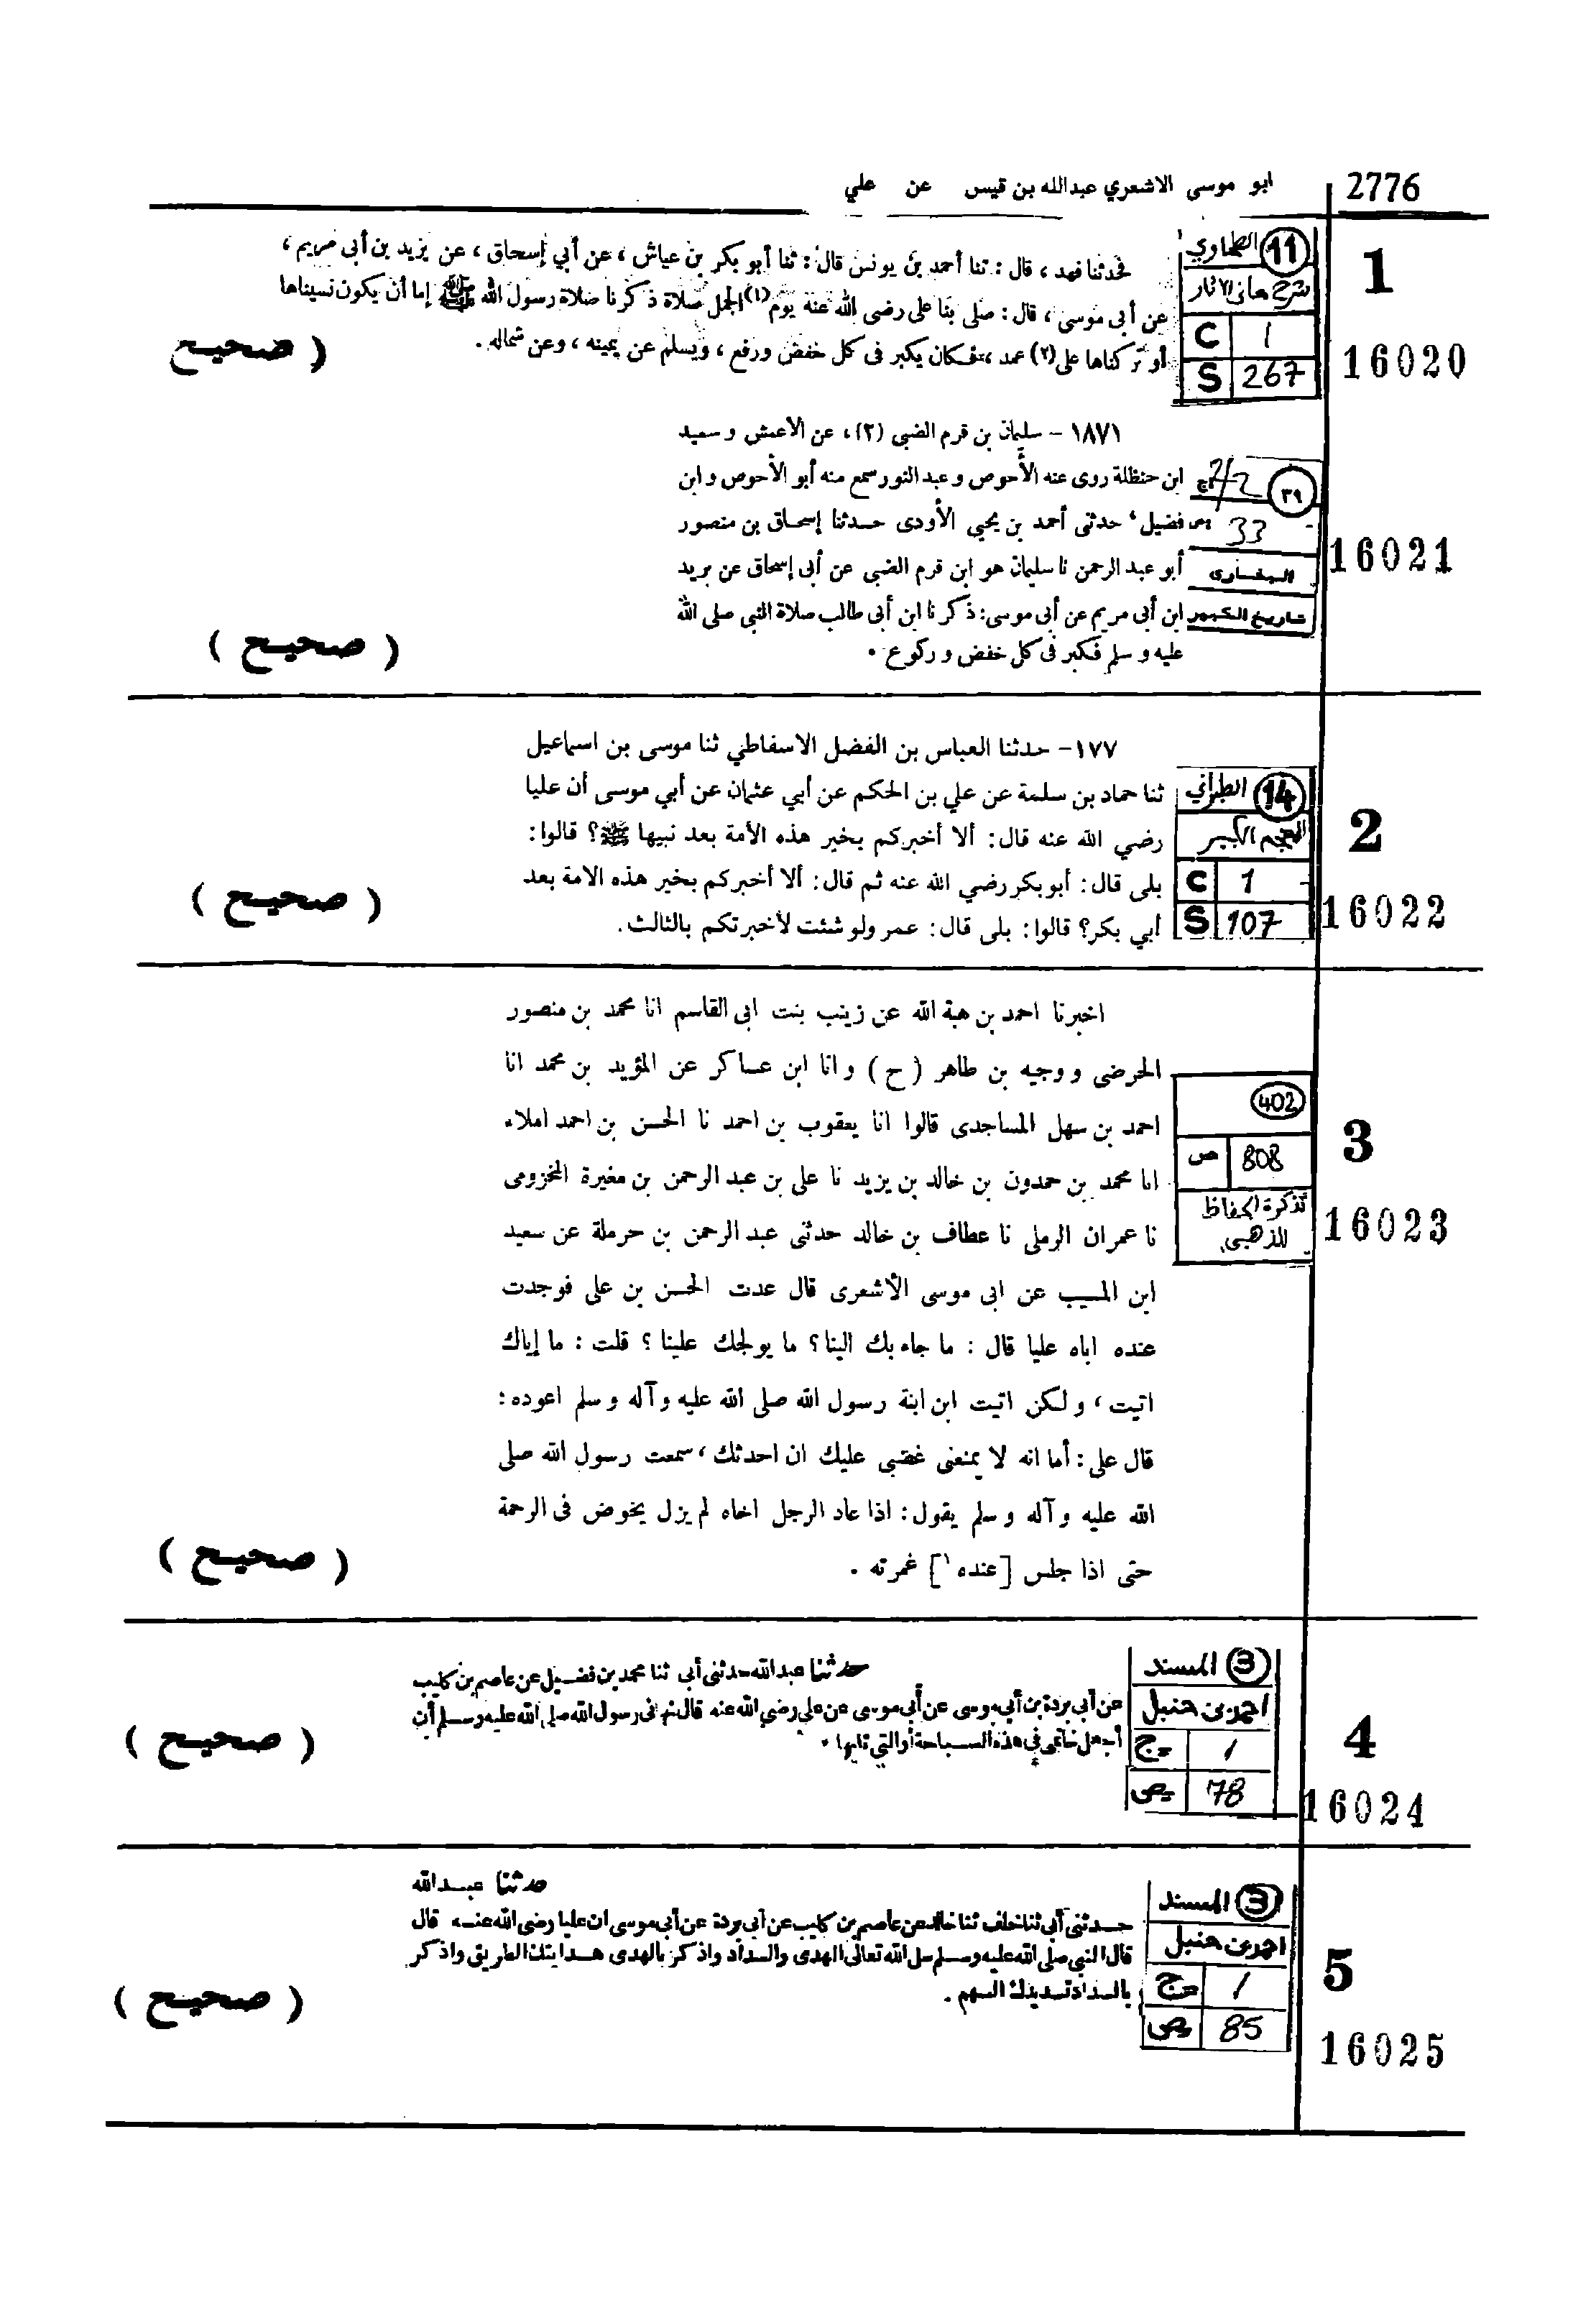 2776
ابو موسى الاشعري عبدالله بن قيس عن علي
1
16020
11 الطحاوي
شرح معاني الاثار
C 1
S 267
فحدثنا فهد ، قال : ثنا أحمد بن يونس قال : ثنا أبو بكر بن عياش ، عن أبي إسحاق ، عن يزيد بن أبى مريم ،
عن أبى موسى ، قال : صلى بنا على رضى الله عنه يوم (١) الجمل صلاة ذكرنا صلاة رسول الله ﷺ إما أن يكون نسيناها
أو تركناها على (٢) عمد ، فكان يكبر فى كل خفض ورفع ، ويسلم عن يمينه ، وعن شماله .
( صحيح
16021
٣٩
ج 2/2
ص 33
البخارى
تاريخ الكبير
١٨٧١ – سليمان بن قرم الضبى (٢)، عن الأعمش وسعيد
ابن حنظلة روى عنه الأحوص وعبد النور سمع منه أبو الأحوص وابن
فضيل ، حدثنى أحمد بن يحيى الأودى حدثنا إسحاق بن منصور
أبو عبد الرحمن نا سليمان هو ابن قرم الضبى عن أبى إسحاق عن بريد
ابن أبى مريم عن أبى موسى: ذكرنا ابن أبى طالب صلاة النبى صلى الله
عليه وسلم فكبر فى كل خفض وركوع .
( صحيح )
2
16022
14 الطبراني
المعجم الكبير
C 1
S 107
١٧٧– حدثنا العباس بن الفضل الاسفاطي ثنا موسى بن اسماعيل
ثنا حماد بن سلمة عن علي بن الحكم عن أبي عثمان عن أبي موسى أن عليا
رضي الله عنه قال: ألا أخبركم بخير هذه الأمة بعد نبيها ﷺ؟ قالوا:
بلى قال: أبو بكر رضي الله عنه ثم قال: ألا أخبركم بخير هذه الامة بعد
أبي بكر؟ قالوا: بلى قال: عمر ولو شئت لأخبرتكم بالثالث.
( صحيح )
3
16023
402
ص 808
تذكرة الحفاظ
للذهبي
اخبرنا احمد بن هبة الله عن زينب بنت ابى القاسم انا محمد بن منصور
الحرضى ووجيه بن طاهر ( ح ) وانا ابن عساكر عن المؤيد بن محمد انا
احمد بن سهل المساجدى قالوا انا يعقوب بن احمد نا الحسن بن احمد املاء
انا محمد بن حمدون بن خالد بن يزيد نا على بن عبد الرحمن بن مغيرة المخزومى
نا عمران الرملى نا عطاف بن خالد حدثنى عبد الرحمن بن حرملة عن سعيد
ابن المسيب عن ابى موسى الأشعرى قال عدت الحسن بن على فوجدت
عنده اباه عليا قال : ما جاء بك الينا ؟ ما يولجك علينا ؟ قلت : ما إياك
اتيت ، ولكن اتيت ابن ابنة رسول الله صلى الله عليه وآله وسلم اعوده :
قال على : أما انه لا يمنعنى غضبى عليك ان احدثك ، سمعت رسول الله صلى
الله عليه وآله وسلم يقول : اذا عاد الرجل اخاه لم يزل يخوض فى الرحمة
حتى اذا جلس [عنده ١] غمرته .
( صحيح )
4
16024
3 المسند
احمد بن حنبل
ج 1
ص 78
حدثنا عبد الله حدثنى أبى ثنا محمد بن فضيل عن عاصم بن كليب
عن أبى بردة بن أبى موسى عن أبى موسى عن على رضي الله عنه قال نهانى رسول الله صلى الله عليه وسلم أن
أجعل خاتمى فى هذه السباحة أو التى تليها .
( صحيح )
5
16025
3 المسند
احمد بن حنبل
ج 1
ص 85
حدثنا عبد الله
حدثنى أبى ثنا خلف ثنا خالد عن عاصم بن كليب عن أبى بردة عن أبى موسى ان عليا رضى الله عنه قال
قال النبى صلى الله عليه وسلم سل الله تعالى الهدى والسداد واذكر بالهدى هدايتك الطريق واذكر
بالسداد تسديدك السهم .
( صحيح )